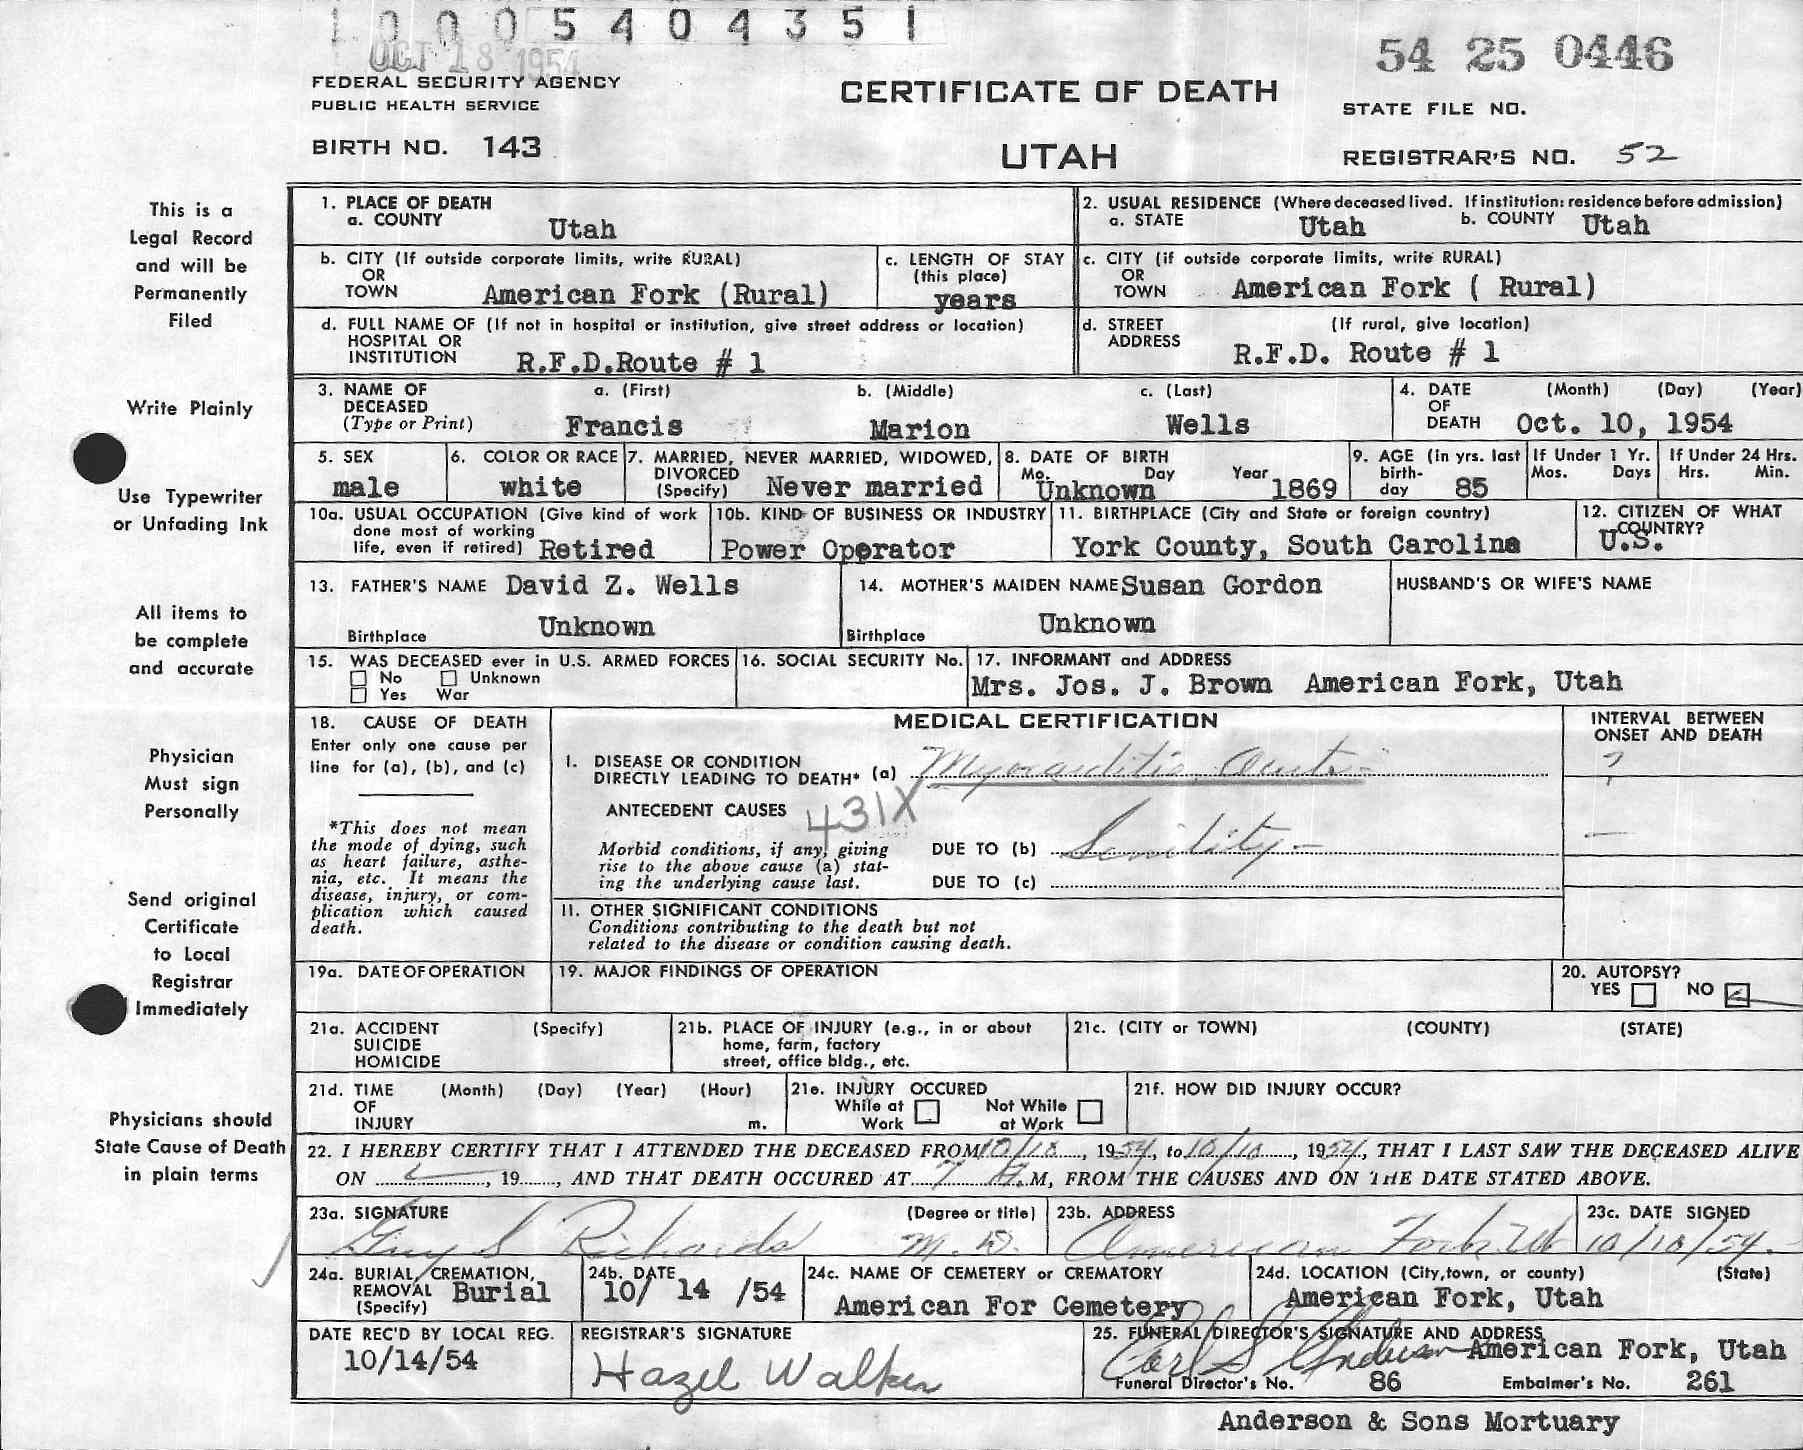 1 0 0 0 5 4 0 4 3 5 1
OCT 18 1954
54 25 0446
FEDERAL SECURITY AGENCY
PUBLIC HEALTH SERVICE
CERTIFICATE OF DEATH
STATE FILE NO.
BIRTH NO. 143
UTAH
REGISTRAR'S NO. 52
This is a
Legal Record
and will be
Permanently
Filed
Write Plainly
Use Typewriter
or Unfading Ink
All items to
be complete
and accurate
Physician
Must sign
Personally
Send original
Certificate
to Local
Registrar
Immediately
Physicians should
State Cause of Death
in plain terms
1. PLACE OF DEATH
a. COUNTY Utah
2. USUAL RESIDENCE (Where deceased lived. If institution: residence before admission)
a. STATE Utah b. COUNTY Utah
b. CITY (If outside corporate limits, write RURAL)
OR
TOWN American Fork (Rural)
c. LENGTH OF STAY
(this place)
years
c. CITY (if outside corporate limits, write RURAL)
OR
TOWN American Fork ( Rural)
d. FULL NAME OF (If not in hospital or institution, give street address or location)
HOSPITAL OR
INSTITUTION R.F.D.Route # 1
d. STREET (If rural, give location)
ADDRESS R.F.D. Route # 1
3. NAME OF a. (First) b. (Middle) c. (Last)
DECEASED
(Type or Print) Francis Marion Wells
4. DATE (Month) (Day) (Year)
OF
DEATH Oct. 10, 1954
5. SEX
male
6. COLOR OR RACE
white
7. MARRIED, NEVER MARRIED, WIDOWED,
DIVORCED
(Specify) Never married
8. DATE OF BIRTH
Mo. Day Year
Unknown 1869
9. AGE (In yrs. last
birth-
day 85
If Under 1 Yr.
Mos. Days
If Under 24 Hrs.
Hrs. Min.
10a. USUAL OCCUPATION (Give kind of work
done most of working
life, even if retired) Retired
10b. KIND OF BUSINESS OR INDUSTRY
Power Operator
11. BIRTHPLACE (City and State or foreign country)
York County, South Carolina
12. CITIZEN OF WHAT
COUNTRY?
U.S.
13. FATHER'S NAME David Z. Wells
Birthplace Unknown
14. MOTHER'S MAIDEN NAME Susan Gordon
Birthplace Unknown
HUSBAND'S OR WIFE'S NAME
15. WAS DECEASED ever in U.S. ARMED FORCES
No Unknown
Yes War
16. SOCIAL SECURITY No.
17. INFORMANT and ADDRESS
Mrs. Jos. J. Brown American Fork, Utah
18. CAUSE OF DEATH
Enter only one cause per
line for (a), (b), and (c)
*This does not mean
the mode of dying, such
as heart failure, asthe-
nia, etc. It means the
disease, injury, or com-
plication which caused
death.
MEDICAL CERTIFICATION
INTERVAL BETWEEN
ONSET AND DEATH
I. DISEASE OR CONDITION
DIRECTLY LEADING TO DEATH* (a) Myocarditis, Acute - ?
ANTECEDENT CAUSES 431X
Morbid conditions, if any, giving
rise to the above cause (a) stat-
ing the underlying cause last.
DUE TO (b) Senility - —
DUE TO (c)
II. OTHER SIGNIFICANT CONDITIONS
Conditions contributing to the death but not
related to the disease or condition causing death.
19a. DATE OF OPERATION
19. MAJOR FINDINGS OF OPERATION
20. AUTOPSY?
YES NO
21a. ACCIDENT (Specify)
SUICIDE
HOMICIDE
21b. PLACE OF INJURY (e.g., in or about
home, farm, factory
street, office bldg., etc.
21c. (CITY or TOWN) (COUNTY) (STATE)
21d. TIME (Month) (Day) (Year) (Hour)
OF
INJURY m.
21e. INJURY OCCURED
While at Work Not While at Work
21f. HOW DID INJURY OCCUR?
22. I HEREBY CERTIFY THAT I ATTENDED THE DECEASED FROM 10/10, 1954, to 10/10, 1954, THAT I LAST SAW THE DECEASED ALIVE
ON , 19 , AND THAT DEATH OCCURED AT 7 A.M, FROM THE CAUSES AND ON THE DATE STATED ABOVE.
23a. SIGNATURE (Degree or title)
Guy S Richards M.D.
23b. ADDRESS
American Fork Ut
23c. DATE SIGNED
10/10/54.
24a. BURIAL, CREMATION,
REMOVAL Burial
(Specify)
24b. DATE
10/ 14 /54
24c. NAME OF CEMETERY or CREMATORY
American For Cemetery
24d. LOCATION (City, town, or county) (State)
American Fork, Utah
DATE REC'D BY LOCAL REG.
10/14/54
REGISTRAR'S SIGNATURE
Hazel Walker
25. FUNERAL DIRECTOR'S SIGNATURE AND ADDRESS
Carl S Anderson American Fork, Utah
Funeral Director's No. 86 Embalmer's No. 261
Anderson & Sons Mortuary